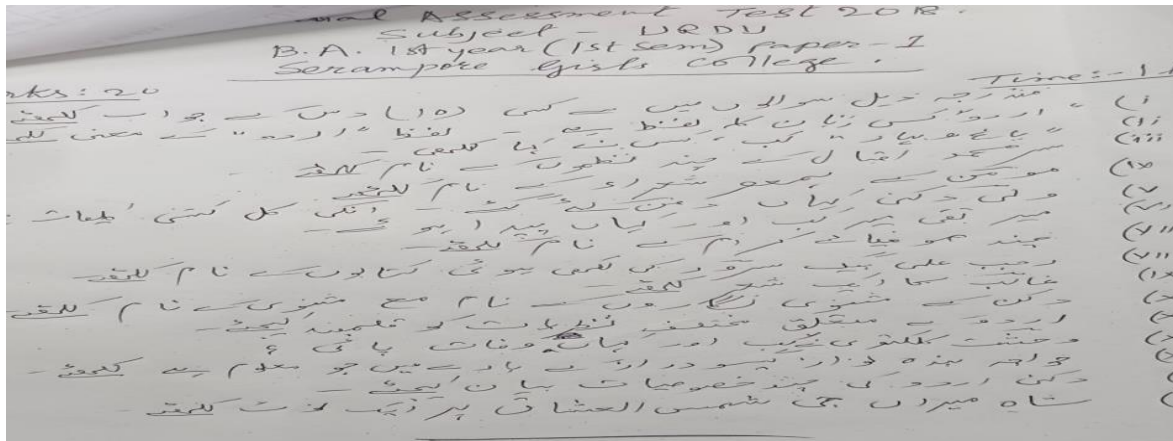 Assessment Test 2018.
Subject - URDU
B.A. 1st year (1st Sem) Paper - I
Serampore Girls College.
rks: 20 Time:- 1
مندرجہ ذیل سوالوں میں سے کسی (۱۵) دس کے جواب لکھئے
(i) "اردو" کس زبان کا لفظ ہے لفظ "اردو" کے معنی
(ii) "باغ و بہار" کب، کس نے لکھی -
(iii) سر محمد اقبال کے چند نظموں کے نام لکھئے
(iv) مومن کے ہمعصر شعراء کے نام لکھئے
(v) ولی دکنی کہاں دفن کئے گئے - انکی کل کتنی
(vi) میر تقی میر کب اور کہاں پیدا ہوئے -
(vii) چند صوفیائے کرام کے نام لکھئے -
(viii) رجب علی بیگ سرور کی لکھی ہوئی کتابوں کے نام لکھئے -
(ix) غالب کا ایک شعر لکھئے -
دکن کے مثنوی نگاروں کے نام مع مثنوی کے نام لکھئے
اردو سے متعلق مختلف نظریات کو قلمبند کیجئے -
وحشت کلکتوی کب اور کہاں وفات پائی ؟
خواجہ بندہ نواز گیسو دراز کے بارے میں جو معلوم ہے لکھئے -
دکن اردو کی چند خصوصیات بیان کیجئے -
شاہ میراں جی شمس العشاق پر ایک نوٹ لکھئے -